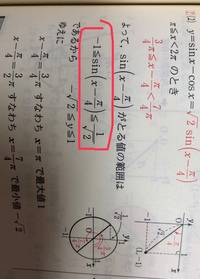 (2) y=sinx-cosx=√2 sin(x-π/4)
π≦x<2π のとき
3/4π≦x-π/4<7/4π
よって，sin(x-π/4)がとる値の範囲は
-1≦sin(x-π/4)≦1/√2
であるから -√2≦y≦1
ゆえに
x-π/4=3/4π すなわち x=π で最大値1
x-π/4=3/2π すなわち x=7/4π で最小値 -√2